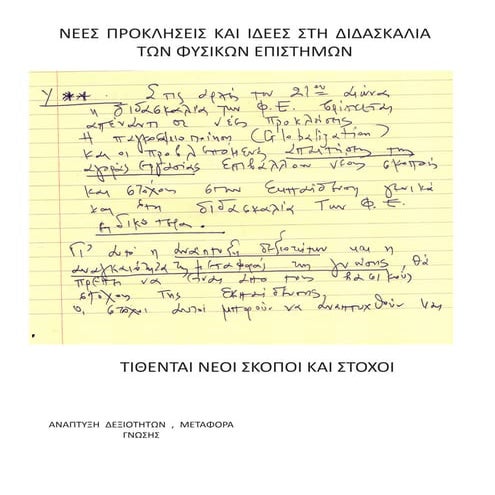 ΝΕΕΣ ΠΡΟΚΛΗΣΕΙΣ ΚΑΙ ΙΔΕΕΣ ΣΤΗ ΔΙΔΑΣΚΑΛΙΑ
ΤΩΝ ΦΥΣΙΚΩΝ ΕΠΙΣΤΗΜΩΝ
Στις αρχές του 21ου αιώνα
η διδασκαλία των Φ.Ε. βρίσκεται
απέναντι σε νέες προκλήσεις
Η παγκοσμιοποίηση (Globalization)
και οι προβλεπόμενες απαιτήσεις της
αγοράς εργασίας επιβάλλουν νέους σκοπούς
και στόχους στην εκπαίδευση γενικά
και στη διδασκαλία των Φ.Ε.
ειδικότερα.
Γι' αυτό η ανάπτυξη δεξιοτήτων και η
αναγκαιότητα μεταφοράς της γνώσης, θα
πρέπει να είναι από τους βασικούς
στόχους της εκπαίδευσης
οι στόχοι αυτοί μπορούν να αναπτυχθούν και
ΤΙΘΕΝΤΑΙ ΝΕΟΙ ΣΚΟΠΟΙ ΚΑΙ ΣΤΟΧΟΙ
ΑΝΑΠΤΥΞΗ ΔΕΞΙΟΤΗΤΩΝ , ΜΕΤΑΦΟΡΑ
ΓΝΩΣΗΣ